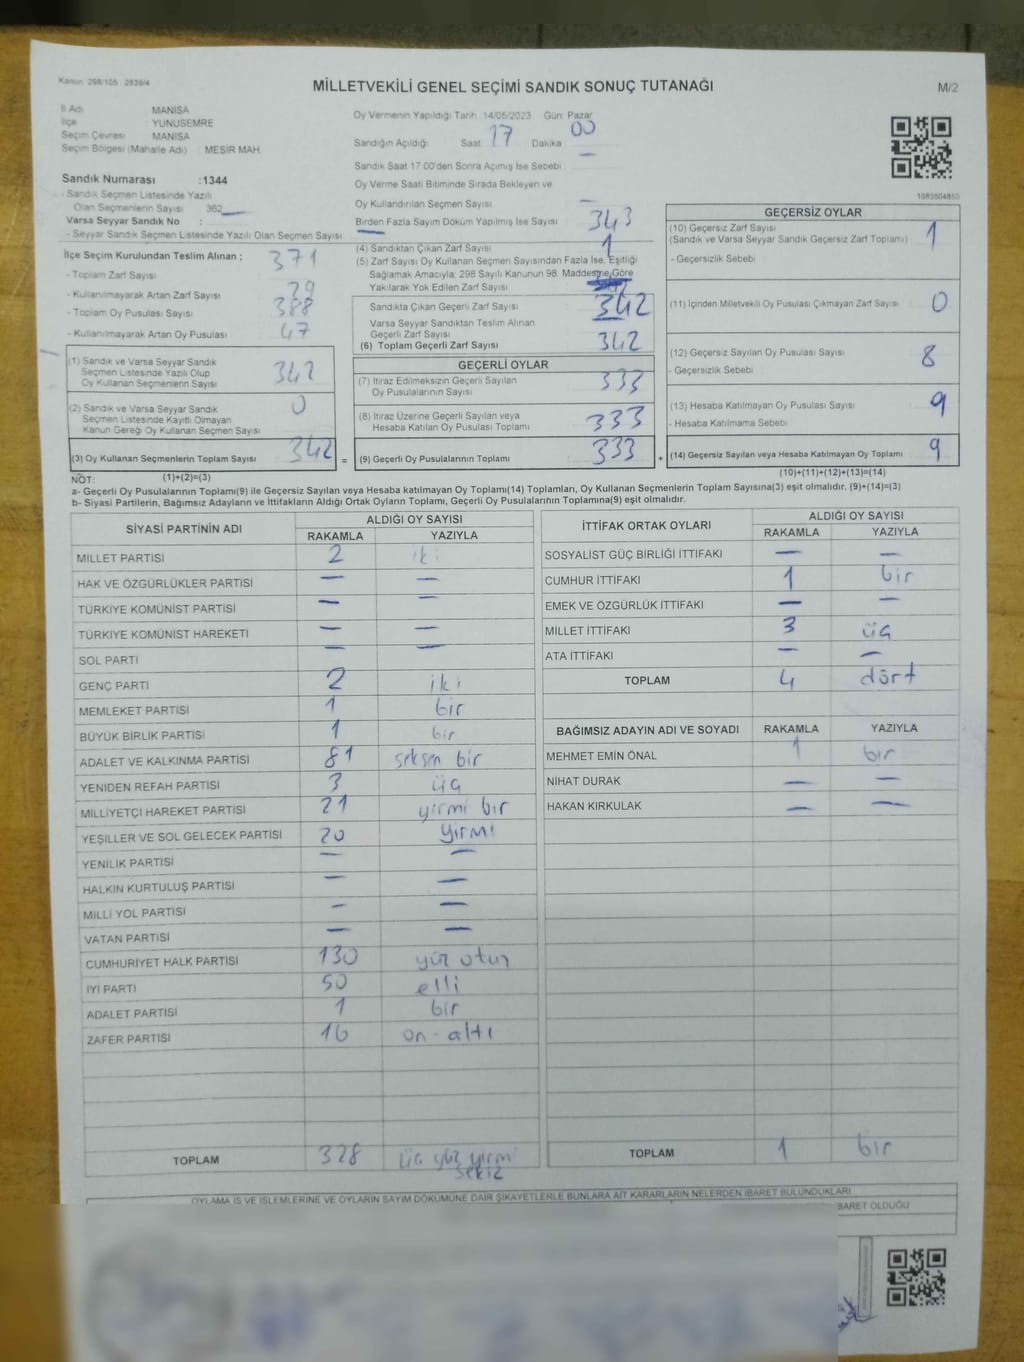 Kanun: 298/105 , 2839/4
MİLLETVEKİLİ GENEL SEÇİMİ SANDIK SONUÇ TUTANAĞI
M/2
İl Adı MANİSA
İlçe : YUNUSEMRE
Seçim Çevresi : MANİSA
Seçim Bölgesi (Mahalle Adı) : MESİR MAH.
Sandık Numarası :1344
- Sandık Seçmen Listesinde Yazılı
Olan Seçmenlerin Sayısı 362
Varsa Seyyar Sandık No :
- Seyyar Sandık Seçmen Listesinde Yazılı Olan Seçmen Sayısı
Oy Vermenin Yapıldığı Tarih 14/05/2023 Gün: Pazar
Sandığın Açıldığı Saat 17 Dakika 00
Sandık Saat 17:00'den Sonra Açılmış İse Sebebi —
Oy Verme Saati Bitiminde Sırada Bekleyen ve
Oy Kullandırılan Seçmen Sayısı —
Birden Fazla Sayım Döküm Yapılmış İse Sayısı —
1083804850
İlçe Seçim Kurulundan Teslim Alınan :
- Toplam Zarf Sayısı 371
- Kullanılmayarak Artan Zarf Sayısı 29
- Toplam Oy Pusulası Sayısı 388
- Kullanılmayarak Artan Oy Pusulası 47
(1) Sandık ve Varsa Seyyar Sandık
Seçmen Listesinde Yazılı Olup
Oy Kullanan Seçmenlerin Sayısı 342
(2) Sandık ve Varsa Seyyar Sandık
Seçmen Listesinde Kayıtlı Olmayan
Kanun Gereği Oy Kullanan Seçmen Sayısı 0
(3) Oy Kullanan Seçmenlerin Toplam Sayısı 342 =
(1)+(2)=(3)
(4) Sandıktan Çıkan Zarf Sayısı 343
(5) Zarf Sayısı Oy Kullanan Seçmen Sayısından Fazla İse, Eşitliği
Sağlamak Amacıyla, 298 Sayılı Kanunun 98. Maddesine Göre
Yakılarak Yok Edilen Zarf Sayısı 1
Sandıkta Çıkan Geçerli Zarf Sayısı 342
Varsa Seyyar Sandıktan Teslim Alınan
Geçerli Zarf Sayısı
(6) Toplam Geçerli Zarf Sayısı 342
GEÇERLİ OYLAR
(7) İtiraz Edilmeksizin Geçerli Sayılan
Oy Pusulalarının Sayısı 333
(8) İtiraz Üzerine Geçerli Sayılan veya
Hesaba Katılan Oy Pusulası Toplamı 333
(9) Geçerli Oy Pusulalarının Toplamı 333 +
GEÇERSİZ OYLAR
(10) Geçersiz Zarf Sayısı
(Sandık ve Varsa Seyyar Sandık Geçersiz Zarf Toplamı) 1
- Geçersizlik Sebebi
(11) İçinden Milletvekili Oy Pusulası Çıkmayan Zarf Sayısı 0
(12) Geçersiz Sayılan Oy Pusulası Sayısı 8
- Geçersizlik Sebebi
(13) Hesaba Katılmayan Oy Pusulası Sayısı 9
- Hesaba Katılmama Sebebi
(14) Geçersiz Sayılan veya Hesaba Katılmayan Oy Toplamı 9
(10)+(11)+(12)+(13)=(14)
NOT:
a- Geçerli Oy Pusulalarının Toplamı(9) ile Geçersiz Sayılan veya Hesaba katılmayan Oy Toplamı(14) Toplamları, Oy Kullanan Seçmenlerin Toplam Sayısına(3) eşit olmalıdır. (9)+(14)=(3)
b- Siyasi Partilerin, Bağımsız Adayların ve İttifakların Aldığı Ortak Oyların Toplamı, Geçerli Oy Pusulalarının Toplamına(9) eşit olmalıdır.
SİYASİ PARTİNİN ADI ALDIĞI OY SAYISI
RAKAMLA YAZIYLA
MİLLET PARTİSİ 2 iki
HAK VE ÖZGÜRLÜKLER PARTİSİ — —
TÜRKİYE KOMÜNİST PARTİSİ — —
TÜRKİYE KOMÜNİST HAREKETİ — —
SOL PARTİ — —
GENÇ PARTİ 2 iki
MEMLEKET PARTİSİ 1 bir
BÜYÜK BİRLİK PARTİSİ 1 bir
ADALET VE KALKINMA PARTİSİ 81 seksen bir
YENİDEN REFAH PARTİSİ 3 üç
MİLLİYETÇİ HAREKET PARTİSİ 21 yirmi bir
YEŞİLLER VE SOL GELECEK PARTİSİ 20 yirmi
YENİLİK PARTİSİ — —
HALKIN KURTULUŞ PARTİSİ — —
MİLLİ YOL PARTİSİ — —
VATAN PARTİSİ — —
CUMHURİYET HALK PARTİSİ 130 yüz otuz
İYİ PARTİ 50 elli
ADALET PARTİSİ 1 bir
ZAFER PARTİSİ 16 on-altı
TOPLAM 328 üç yüz yirmi sekiz
İTTİFAK ORTAK OYLARI ALDIĞI OY SAYISI
RAKAMLA YAZIYLA
SOSYALİST GÜÇ BİRLİĞİ İTTİFAKI — —
CUMHUR İTTİFAKI 1 bir
EMEK VE ÖZGÜRLÜK İTTİFAKI — —
MİLLET İTTİFAKI 3 üç
ATA İTTİFAKI — —
TOPLAM 4 dört
BAĞIMSIZ ADAYIN ADI VE SOYADI RAKAMLA YAZIYLA
MEHMET EMİN ÖNAL 1 bir
NİHAT DURAK — —
HAKAN KIRKULAK — —
TOPLAM 1 bir
OYLAMA İŞ VE İŞLEMLERİNE VE OYLARIN SAYIM DÖKÜMÜNE DAİR ŞİKAYETLERLE BUNLARA AİT KARARLARIN NELERDEN İBARET BULUNDUKLARI
BARET OLDUĞU